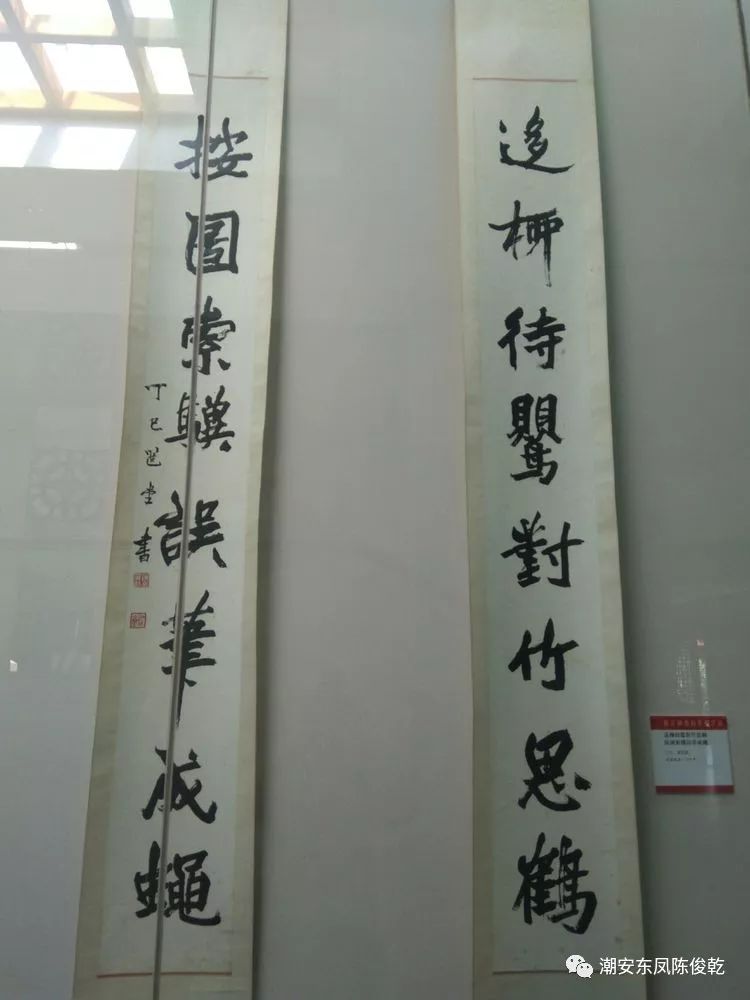 迻柳待鸎對竹思鶴
按圖索驥誤筆成蠅
丁巳選堂書
潮安东凤陈俊乾